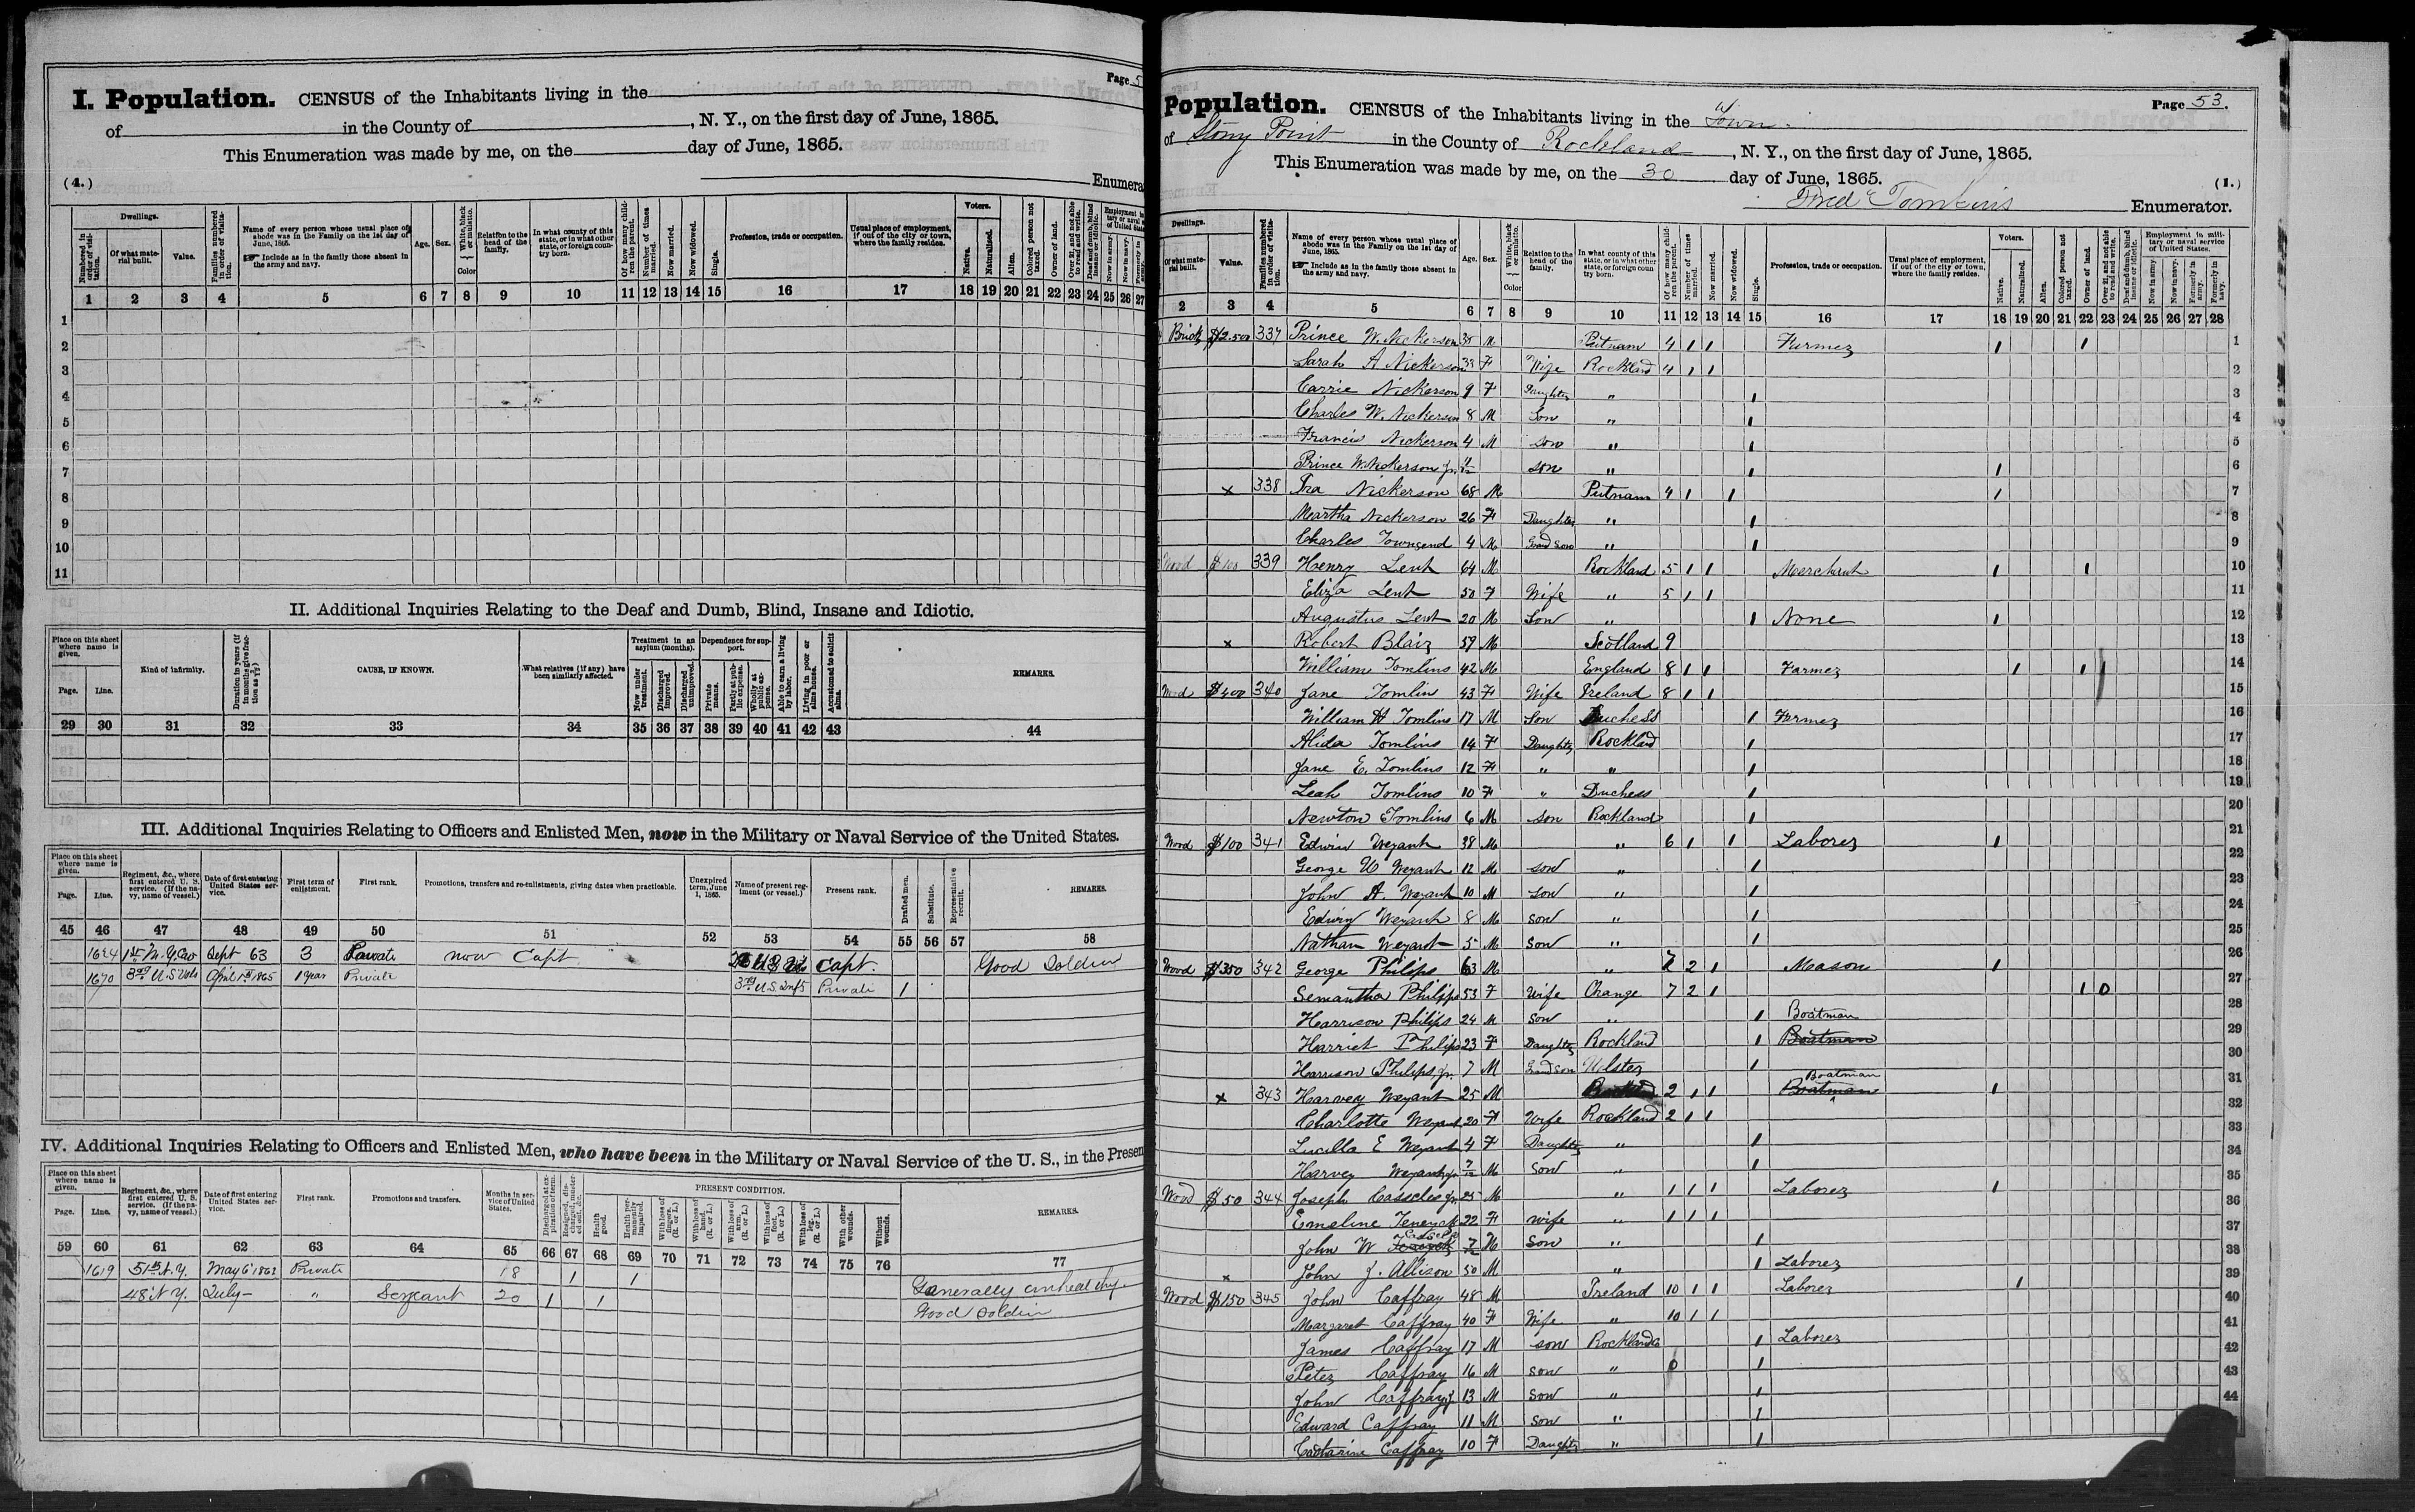 Page 5
I. Population. CENSUS of the Inhabitants living in the
of in the County of , N. Y., on the first day of June, 1865.
This Enumeration was made by me, on the day of June, 1865.
(4.) Enumera
Dwellings. Voters.
Numbered in order of visitation. Of what material built. Value. Families numbered in order of visitation. Name of every person whose usual place of abode was in the Family on the 1st day of June, 1865. Include as in the family those absent in the army and navy. Age. Sex. White, black or mulatto. Color Relation to the head of the family. In what county of this state, or in what other state, or foreign country born. Of how many children the parent. Number of times married. Now married. Now widowed. Single. Profession, trade or occupation. Usual place of employment, if out of the city or town, where the family resides. Native. Naturalized. Alien. Colored person not taxed. Owner of land. Over 21, and not able to read and write. Deaf and dumb, blind insane or idiotic.
1 2 3 4 5 6 7 8 9 10 11 12 13 14 15 16 17 18 19 20 21 22 23 24 25 26 27
1
2
3
4
5
6
7
8
9
10
11
II. Additional Inquiries Relating to the Deaf and Dumb, Blind, Insane and Idiotic.
Place on this sheet where name is given. Page. Line. Kind of infirmity. Duration in years (if in months give fraction as CAUSE, IF KNOWN. What relatives (if any) have been similarly affected. Treatment in an asylum (months). Now under treatment. Discharged improved. Discharged unimproved. Dependence for support. Private means. Partly at public expense. Wholly at public expense. Able to earn a living by labor. Living in poor or alms house. Accustomed to solicit alms. REMARKS.
29 30 31 32 33 34 35 36 37 38 39 40 41 42 43 44
III. Additional Inquiries Relating to Officers and Enlisted Men, now in the Military or Naval Service of the United States.
Place on this sheet where name is given. Page. Line. Regiment, &c., where first entered U. S. service. (If the navy, name of vessel.) Date of first entering United States service. First term of enlistment. First rank. Promotions, transfers and re-enlistments, giving dates when practicable. Unexpired term, June 1, 1865. Name of present regiment (or vessel.) Present rank. Drafted men. Substitute. Representative recruit. REMARKS.
45 46 47 48 49 50 51 52 53 54 55 56 57 58
1624 1st N. Y. Cav Sept 63 3 Private now Capt Capt. Good Soldier
1670 3rd U. S Vols April 1st 1865 1 year Private 3rd U.S. Inft Private 1
IV. Additional Inquiries Relating to Officers and Enlisted Men, who have been in the Military or Naval Service of the U. S., in the Presen
Place on this sheet where name is given. Page. Line. Regiment, &c., where first entered U. S. service. (If the navy, name of vessel.) Date of first entering United States service. First rank. Promotions and transfers. Months in service of United States. Discharged at expiration of term. Resigned, discharged, mustered out, &c. PRESENT CONDITION. Health good. Health permanently impaired. With loss of fingers. (R. or L.) With loss of hand. (R. or L.) With loss of arm. (R. or L.) With loss of foot. (R. or L.) With loss of leg. (R. or L.) With other wounds. Without wounds. REMARKS.
59 60 61 62 63 64 65 66 67 68 69 70 71 72 73 74 75 76 77
1619 51st N. Y. May 6 1862 Private 18 1 1 Generally unhealthy
48 N Y. July - " Sergeant 20 1 1 Good Soldier
Population. CENSUS of the Inhabitants living in the Town Page 53.
of Stony Point in the County of Rockland, N. Y., on the first day of June, 1865.
This Enumeration was made by me, on the 30 day of June, 1865. (1.)
Fred Tomkins Enumerator.
Dwellings. Voters. Employment in military or naval service of United States.
Of what material built. Value. Families numbered in order of visitation. Name of every person whose usual place of abode was in the Family on the 1st day of June, 1865. Include as in the family those absent in the army and navy. Age. Sex. White, black or mulatto. Color Relation to the head of the family. In what county of this state, or in what other state, or foreign coun try born. Of how many children the parent. Number of times married. Now married. Now widowed. Single. Profession, trade or occupation. Usual place of employment, if out of the city or town, where the family resides. Native. Naturalized. Alien. Colored person not taxed. Owner of land. Over 21, and not able to read and write. Deaf and dumb, blind insane or idiotic. Now in army. Now in navy. Formerly in army. Formerly in navy.
2 3 4 5 6 7 8 9 10 11 12 13 14 15 16 17 18 19 20 21 22 23 24 25 26 27 28
Brick $2.500 337 Prince W. Nickerson M Putnam 4 1 1 Farmer 1 1 1
Sarah A Nickerson F Wife Rockland 4 1 1 2
Carrie Nickerson 9 F Daughter " 1 3
Charles W. Nickerson 8 M Son " 1 4
Francis Nickerson 4 M son " 1 5
Prince W. Nickerson Jr. son " 1 1 6
x 338 Ira Nickerson 68 M Putnam 4 1 1 1 7
Martha Nickerson 26 F Daughter " 1 8
Charles Townsend 4 M Grand Son " 1 9
Wood $100 339 Henry Lent 64 M Rockland 5 1 1 Merchant 1 1 10
Eliza Lent 50 F Wife " 5 1 1 11
Augustus Lent 20 M Son " 1 None 1 12
x Robert Blair 59 M Scotland 9 13
William Tomlins 42 M England 8 1 1 Farmer 1 1 1 14
Wood $400 340 Jane Tomlin 43 F Wife Ireland 8 1 1 15
William H Tomlins 17 M Son Duchess 1 Farmer 16
Alida Tomlins 14 F Daughter Rockland 1 17
Jane E. Tomlins 12 F " " 1 18
Leah Tomlins 10 F " Duchess 1 19
Newton Tomlins 6 M son Rockland 1 20
Wood $100 341 Edwin Weyant 38 M " 6 1 1 Laborer 1 21
George W Weyant 12 M son " 1 22
John A. Weyant 10 M son " 1 23
Edwin Weyant 8 M son " 1 24
Nathan Weyant 5 M son " 1 25
Wood $350 342 George Philips 63 M " 7 2 1 Mason 1 26
Semantha Philips 53 F Wife Orange 7 2 1 1 0 27
Harrison Philips 24 M son " 1 Boatman 28
Harriet Philips 23 F Daughter Rockland 1 Boatman 29
Harrison Philips Jr. 7 M Grand Son Ulster 1 30
x 343 Harvey Weyant 25 M Rockland 2 1 1 Boatman Boatman 1 31
Charlotte Weyant 20 F Wife Rockland 2 1 1 32
Lucilla E Weyant 4 F Daughter " 1 33
Harvey Weyant Jr. 7/12 M Son " 1 34
Wood $50 344 Joseph Casscles Jr. 25 M " 1 1 1 Laborer 1 35
Emeline Teneyck 22 F wife " 1 1 1 36
John W Teneyck M Son " 1 37
x John J. Allison 50 M " 1 Laborer 38
Wood $150 345 John Caffray 48 M Ireland 10 1 1 Laborer 1 39
Margaret Caffray 40 F Wife " 10 1 1 40
James Caffray 17 M son Rockland 1 Laborer 41
Peter Caffray 16 M son " 0 1 42
John Caffray Jr 13 M Son " 1 43
Edward Caffray 11 M son " 1 44
Catharine Caffray 10 F Daughter " 1